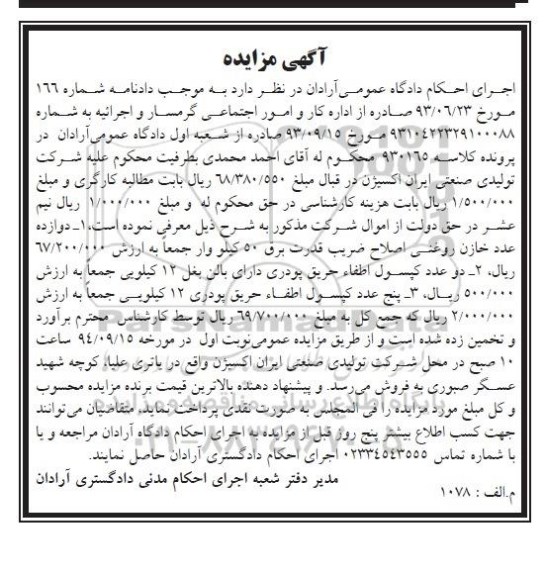 آگهی مزایده
اجرای احکام دادگاه عمومی‌آرادان در نظر دارد به موجب دادنامه شماره ۱۶۶
مورخ ۹۳/۰۶/۲۳ صادره از اداره کار و امور اجتماعی گرمسار و اجرائیه به شماره
۹۳۱۰۴۲۲۳۲۹۱۰۰۰۸۸ مورخ ۹۳/۰۹/۱۵ صادره از شعبه اول دادگاه عمومی‌آرادان در
پرونده کلاسه ۹۳۰۱۶۵ محکوم له آقای احمد محمدی بطرفیت محکوم علیه شرکت
تولیدی صنعتی ایران اکسیژن در قبال مبلغ ۶۸/۳۸۰/۵۵۰ ریال بابت مطالبه کارگری و مبلغ
۱/۵۰۰/۰۰۰ ریال بابت هزینه کارشناسی در حق محکوم له و مبلغ ۱/۰۰۰/۰۰۰ ریال نیم
عشر در حق دولت از اموال شرکت مذکور به شرح ذیل معرفی نموده است،۱ـ دوازده
عدد خازن روغنی اصلاح ضریب قدرت برق ۵۰ کیلو وار جمعاً به ارزش ۶۷/۲۰۰/۰۰۰
ریال، ۲ـ دو عدد کپسول اطفاء حریق پودری دارای بالن بغل ۱۲ کیلویی جمعاً به ارزش
۵۰۰/۰۰۰ ریال، ۳ـ پنج عدد کپسول اطفاء حریق پودری ۱۲ کیلویی جمعاً به ارزش
۲/۰۰۰/۰۰۰ ریال که جمع کل به مبلغ ۶۹/۷۰۰/۰۰۰ ریال توسط کارشناس محترم برآورد
و تخمین زده شده است و از طریق مزایده عمومی‌نوبت اول در مورخه ۹۴/۰۹/۱۵ ساعت
۱۰ صبح در محل شرکت تولیدی صنعتی ایران اکسیژن واقع در یاتری علیا کوچه شهید
عسگر صبوری به فروش می‌رسد. و پیشنهاد دهنده بالاترین قیمت برنده مزایده محسوب
و کل مبلغ مورد مزایده را فی المجلس به صورت نقدی پرداخت نماید، متقاضیان می‌توانند
جهت کسب اطلاع بیشتر پنج روز قبل از مزایده به اجرای احکام دادگاه آرادان مراجعه و یا
با شماره تماس ۰۲۳۳۴۵۴۳۵۵۵ اجرای احکام دادگستری آرادان حاصل نمایند.
مدیر دفتر شعبه اجرای احکام مدنی دادگستری آرادان
م.الف : ۱۰۷۸
ParsNamadData